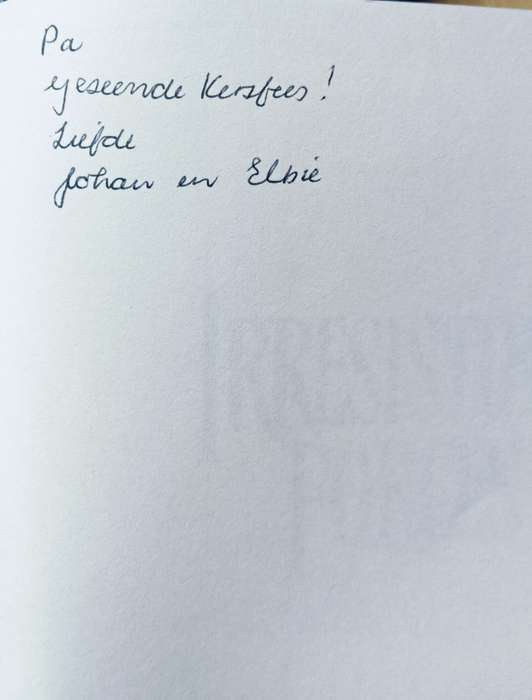 Pa
Geseënde Kersfees!
Liefde
Johan en Elbie